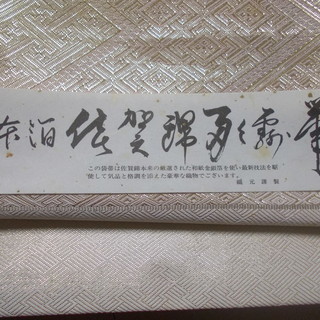 本泊 佐賀錦
この袋帯は佐賀錦本来の厳選された和紙金銀箔を使い最新技法を駆
使して気品と格調を治えた豪華な織物でございます。
織元謹製